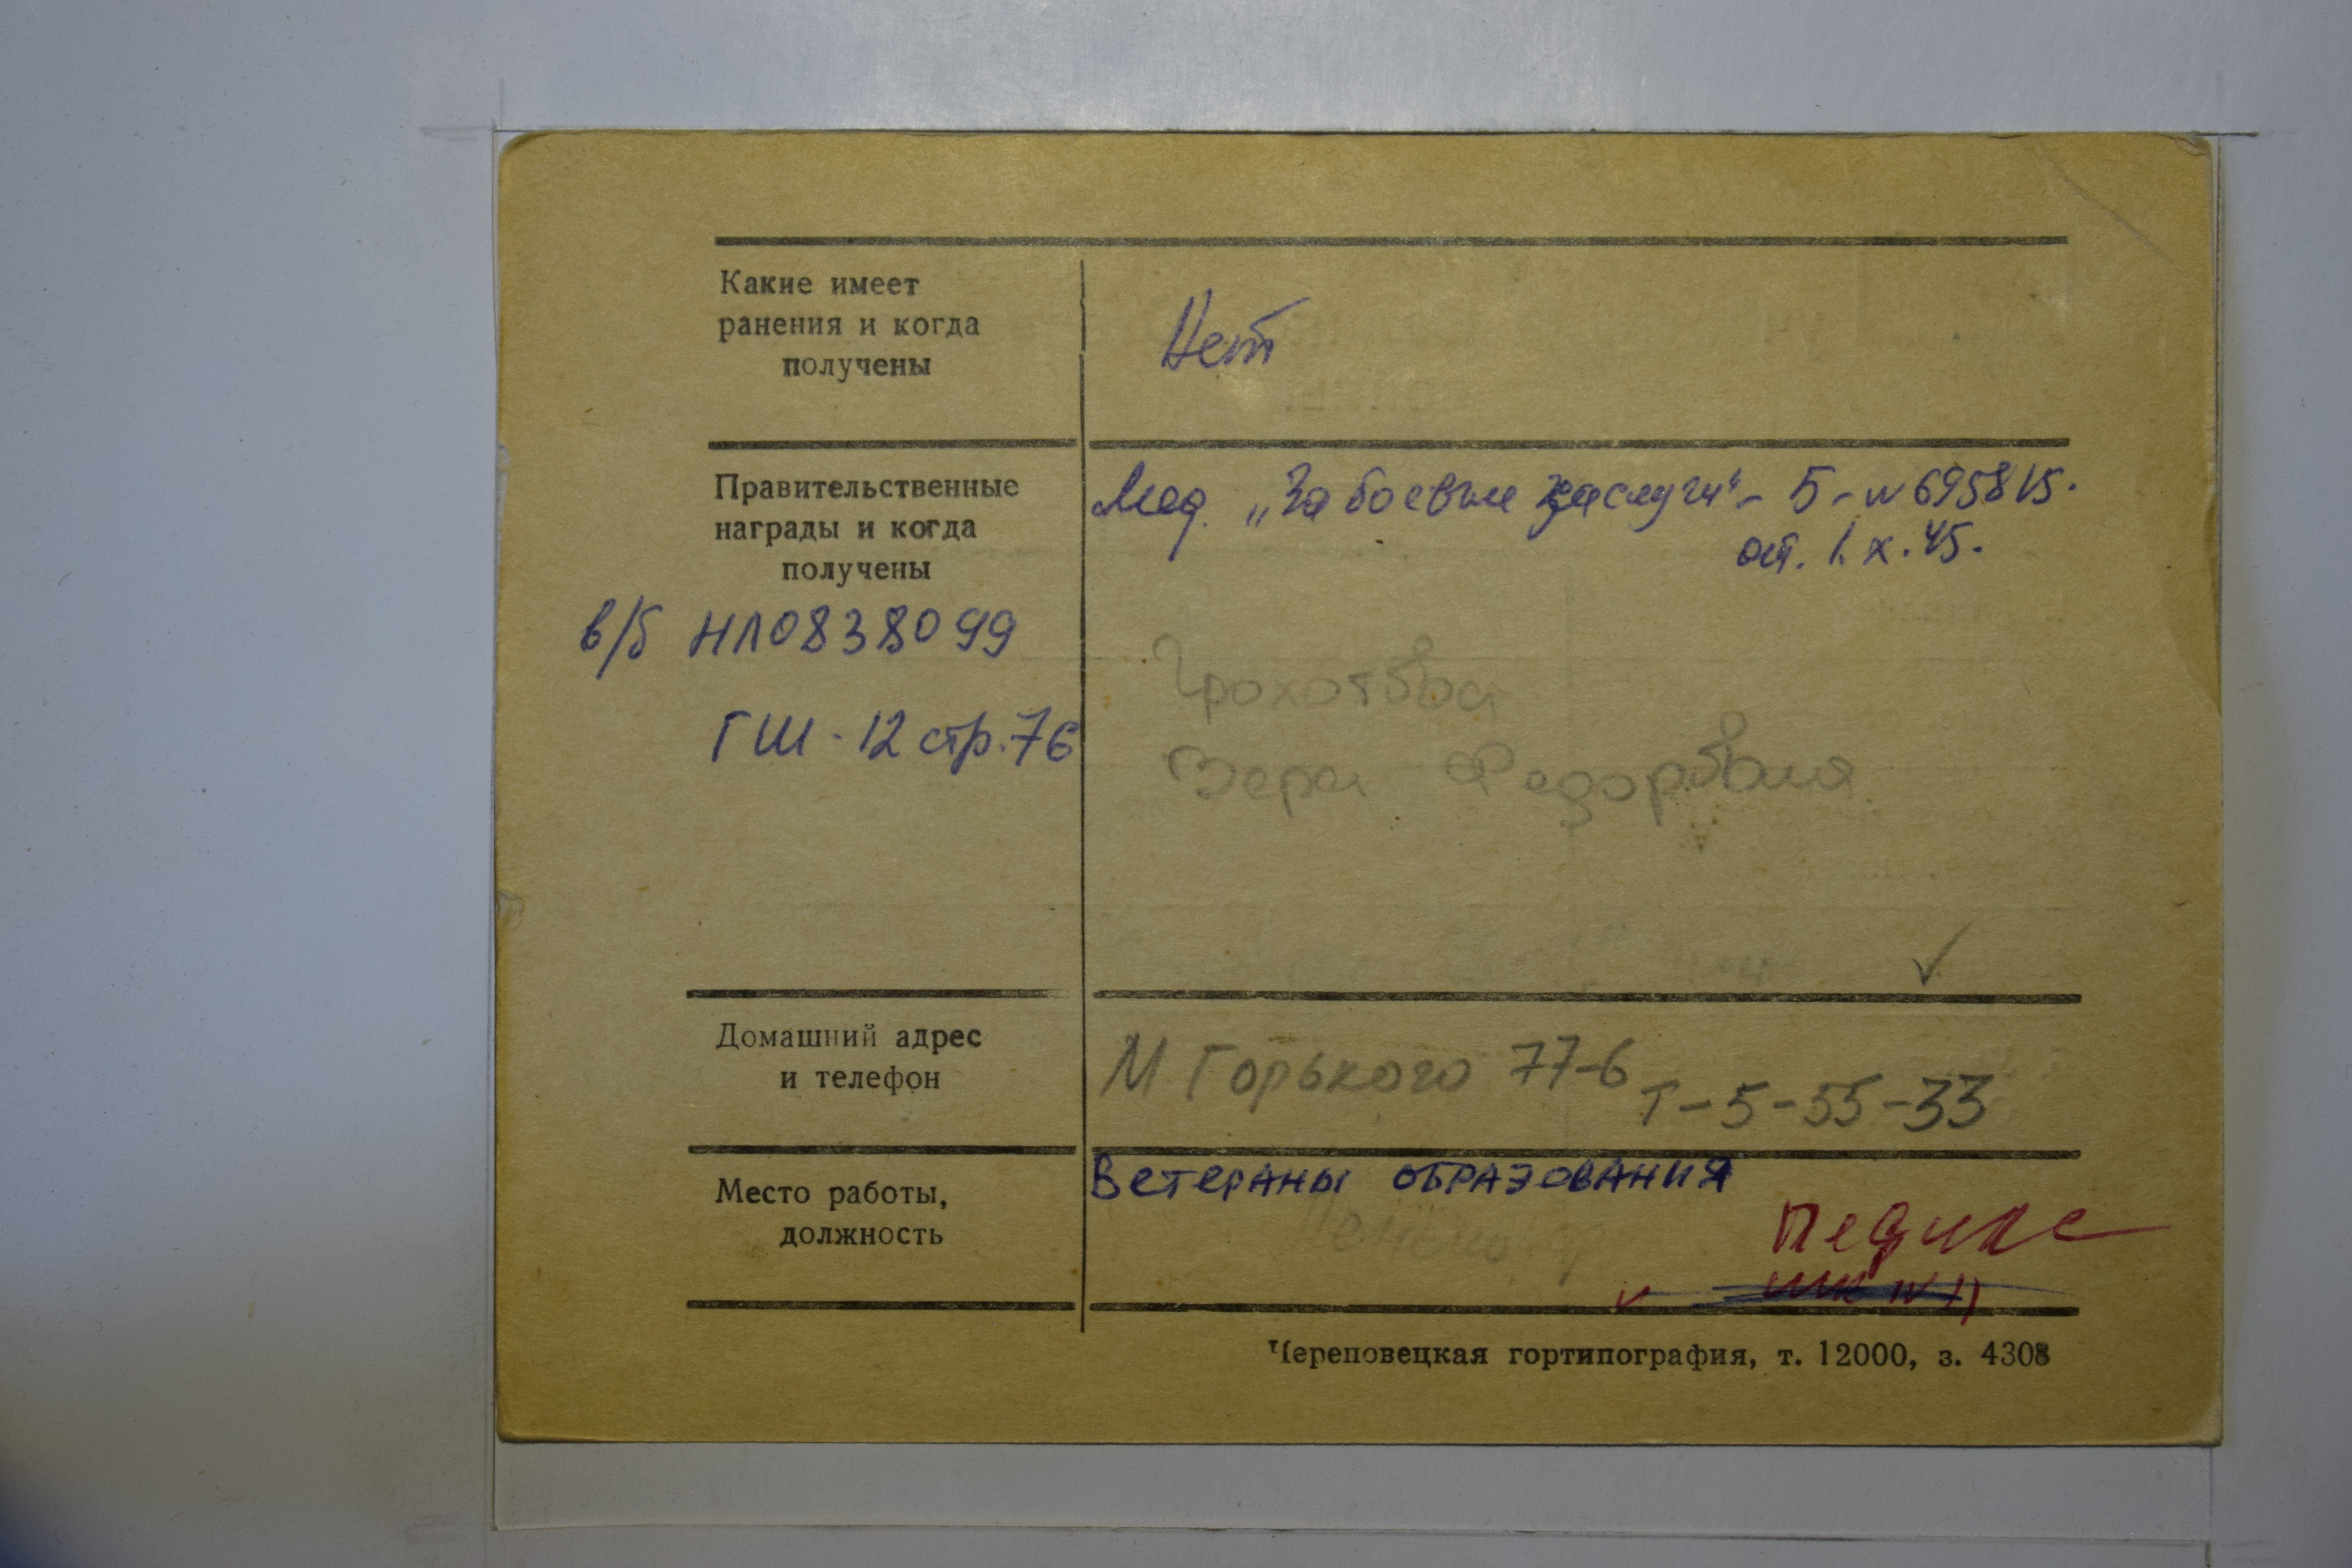 Какие имеет
ранения и когда
получены
Нет
Правительственные
награды и когда
получены
Мед. „За боевые заслуги" - Б - №695815.
от. 1. X. 45.
в/б НЛ0838099
ГШ - 12 стр. 76
Грохотова
Вера Федоровна
Домашний адрес
и телефон
М Горького 77-6
Т-5-55-33
Место работы,
должность
Ветераны образования
Череповецкая гортипография, т. 12000, з. 4308